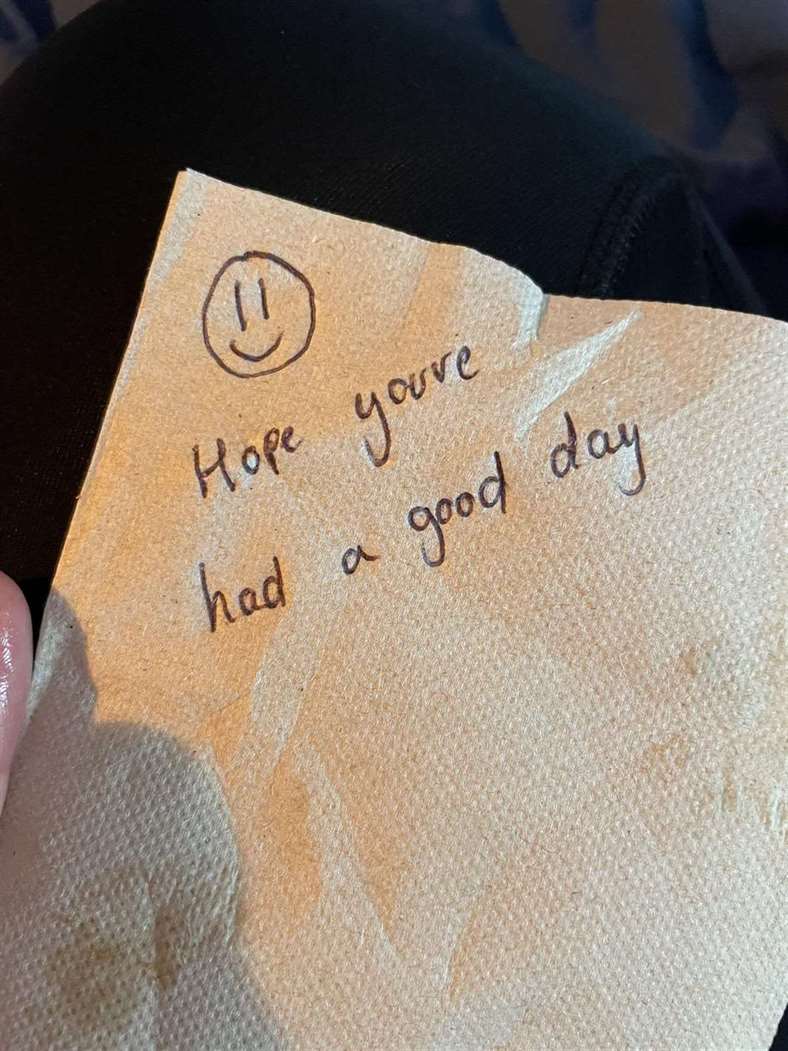 Hope youve
had a good day